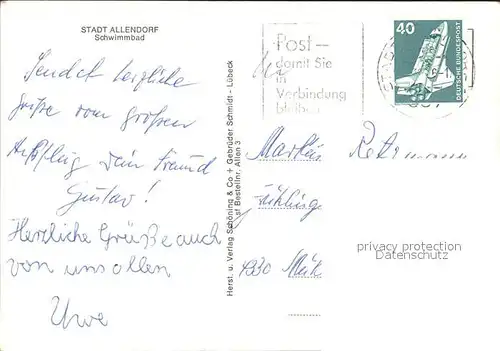 STADT ALLENDORF
Schwimmbad
Sendet herzliche
Grüße vom großen
Ausflug dein Freund
Gustav!
Herzliche Grüße auch
von uns allen
Uwe
Herst. u. Verlag Schöning & Co + Gebrüder Schmidt - Lübeck
auf Bestellnr. Allen 3
Post –
damit Sie
in
Verbindung
bleiben
40
DEUTSCHE BUNDESPOST
Markus
4330 Mül
privacy protection
Datenschutz